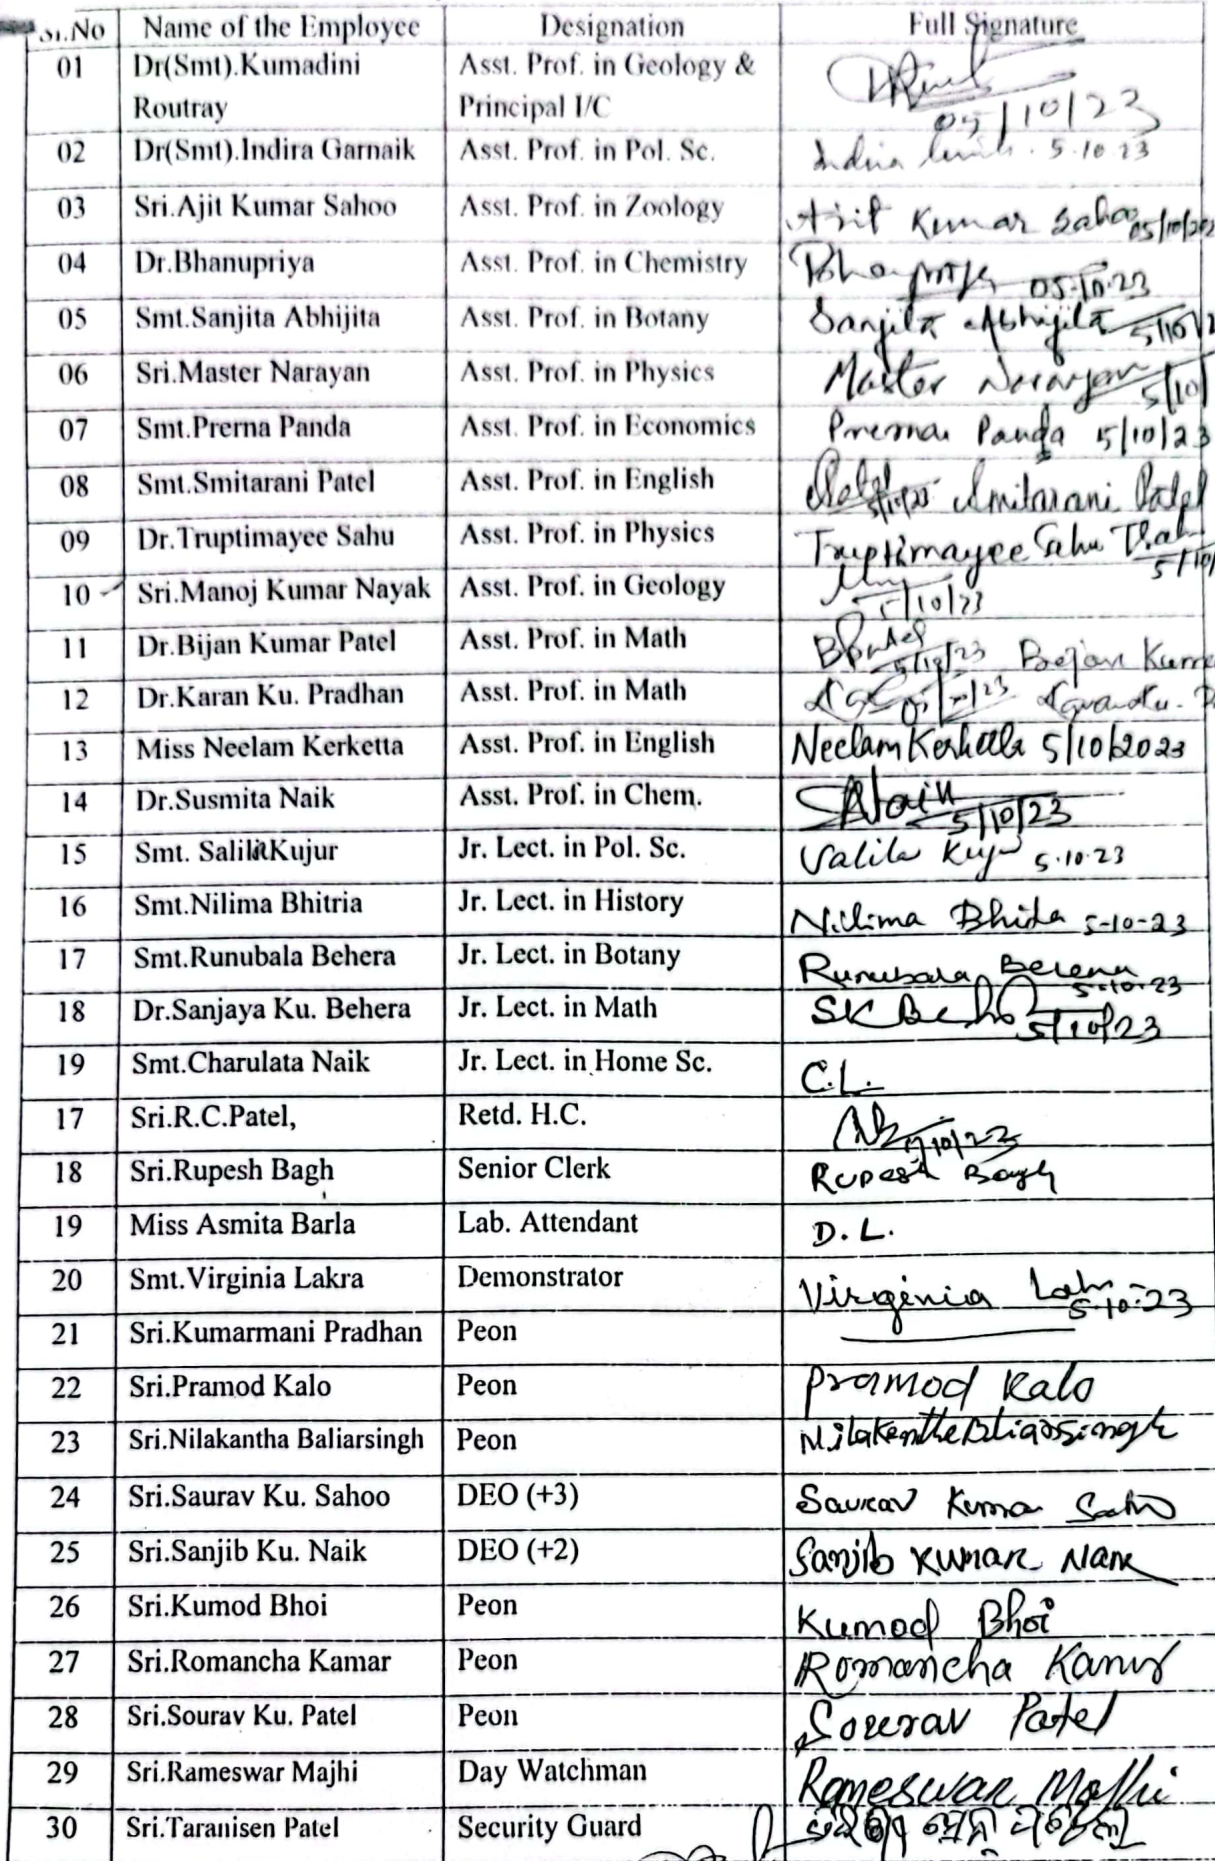 Sl.No Name of the Employee Designation Full Signature
01 Dr(Smt).Kumadini Asst. Prof. in Geology &
Routray Principal I/C
05/10/23
02 Dr(Smt).Indira Garnaik Asst. Prof. in Pol. Sc. Indira 5.10.23
03 Sri.Ajit Kumar Sahoo Asst. Prof. in Zoology Ajit Kumar Sahoo 05/10/202
04 Dr.Bhanupriya Asst. Prof. in Chemistry Bhanupriya 05.10.23
05 Smt.Sanjita Abhijita Asst. Prof. in Botany Sanjita Abhijita 5/10/2
06 Sri.Master Narayan Asst. Prof. in Physics Master Narayan 5/10/
07 Smt.Prerna Panda Asst. Prof. in Economics Prerna Panda 5/10/23
08 Smt.Smitarani Patel Asst. Prof. in English Smitarani Patel
09 Dr.Truptimayee Sahu Asst. Prof. in Physics Truptimayee Sahu 5/10/
10 Sri.Manoj Kumar Nayak Asst. Prof. in Geology 5/10/23
11 Dr.Bijan Kumar Patel Asst. Prof. in Math BPatel 5/10/23 Kuma
12 Dr.Karan Ku. Pradhan Asst. Prof. in Math
13 Miss Neelam Kerketta Asst. Prof. in English Neelam Kerketta 5/10/2023
14 Dr.Susmita Naik Asst. Prof. in Chem. SNaik 5/10/23
15 Smt. Salila Kujur Jr. Lect. in Pol. Sc. Salila Kujur 5.10.23
16 Smt.Nilima Bhitria Jr. Lect. in History Nilima Bhitria 5-10-23
17 Smt.Runubala Behera Jr. Lect. in Botany Runubala Behera 5.10.23
18 Dr.Sanjaya Ku. Behera Jr. Lect. in Math SK Behera 5/10/23
19 Smt.Charulata Naik Jr. Lect. in Home Sc. C.L.
17 Sri.R.C.Patel, Retd. H.C. 5/10/23
18 Sri.Rupesh Bagh Senior Clerk Rupesh Bagh
19 Miss Asmita Barla Lab. Attendant D.L.
20 Smt.Virginia Lakra Demonstrator Virginia Lakra 5.10.23
21 Sri.Kumarmani Pradhan Peon
22 Sri.Pramod Kalo Peon Pramod Kalo
23 Sri.Nilakantha Baliarsingh Peon Nilakantha Baliarsingh
24 Sri.Saurav Ku. Sahoo DEO (+3) Saurav Kumar Sahoo
25 Sri.Sanjib Ku. Naik DEO (+2) Sanjib Kumar Naik
26 Sri.Kumod Bhoi Peon Kumod Bhoi
27 Sri.Romancha Kamar Peon Romancha Kamar
28 Sri.Sourav Ku. Patel Peon Sourav Patel
29 Sri.Rameswar Majhi Day Watchman Rameswar Majhi
30 Sri.Taranisen Patel Security Guard